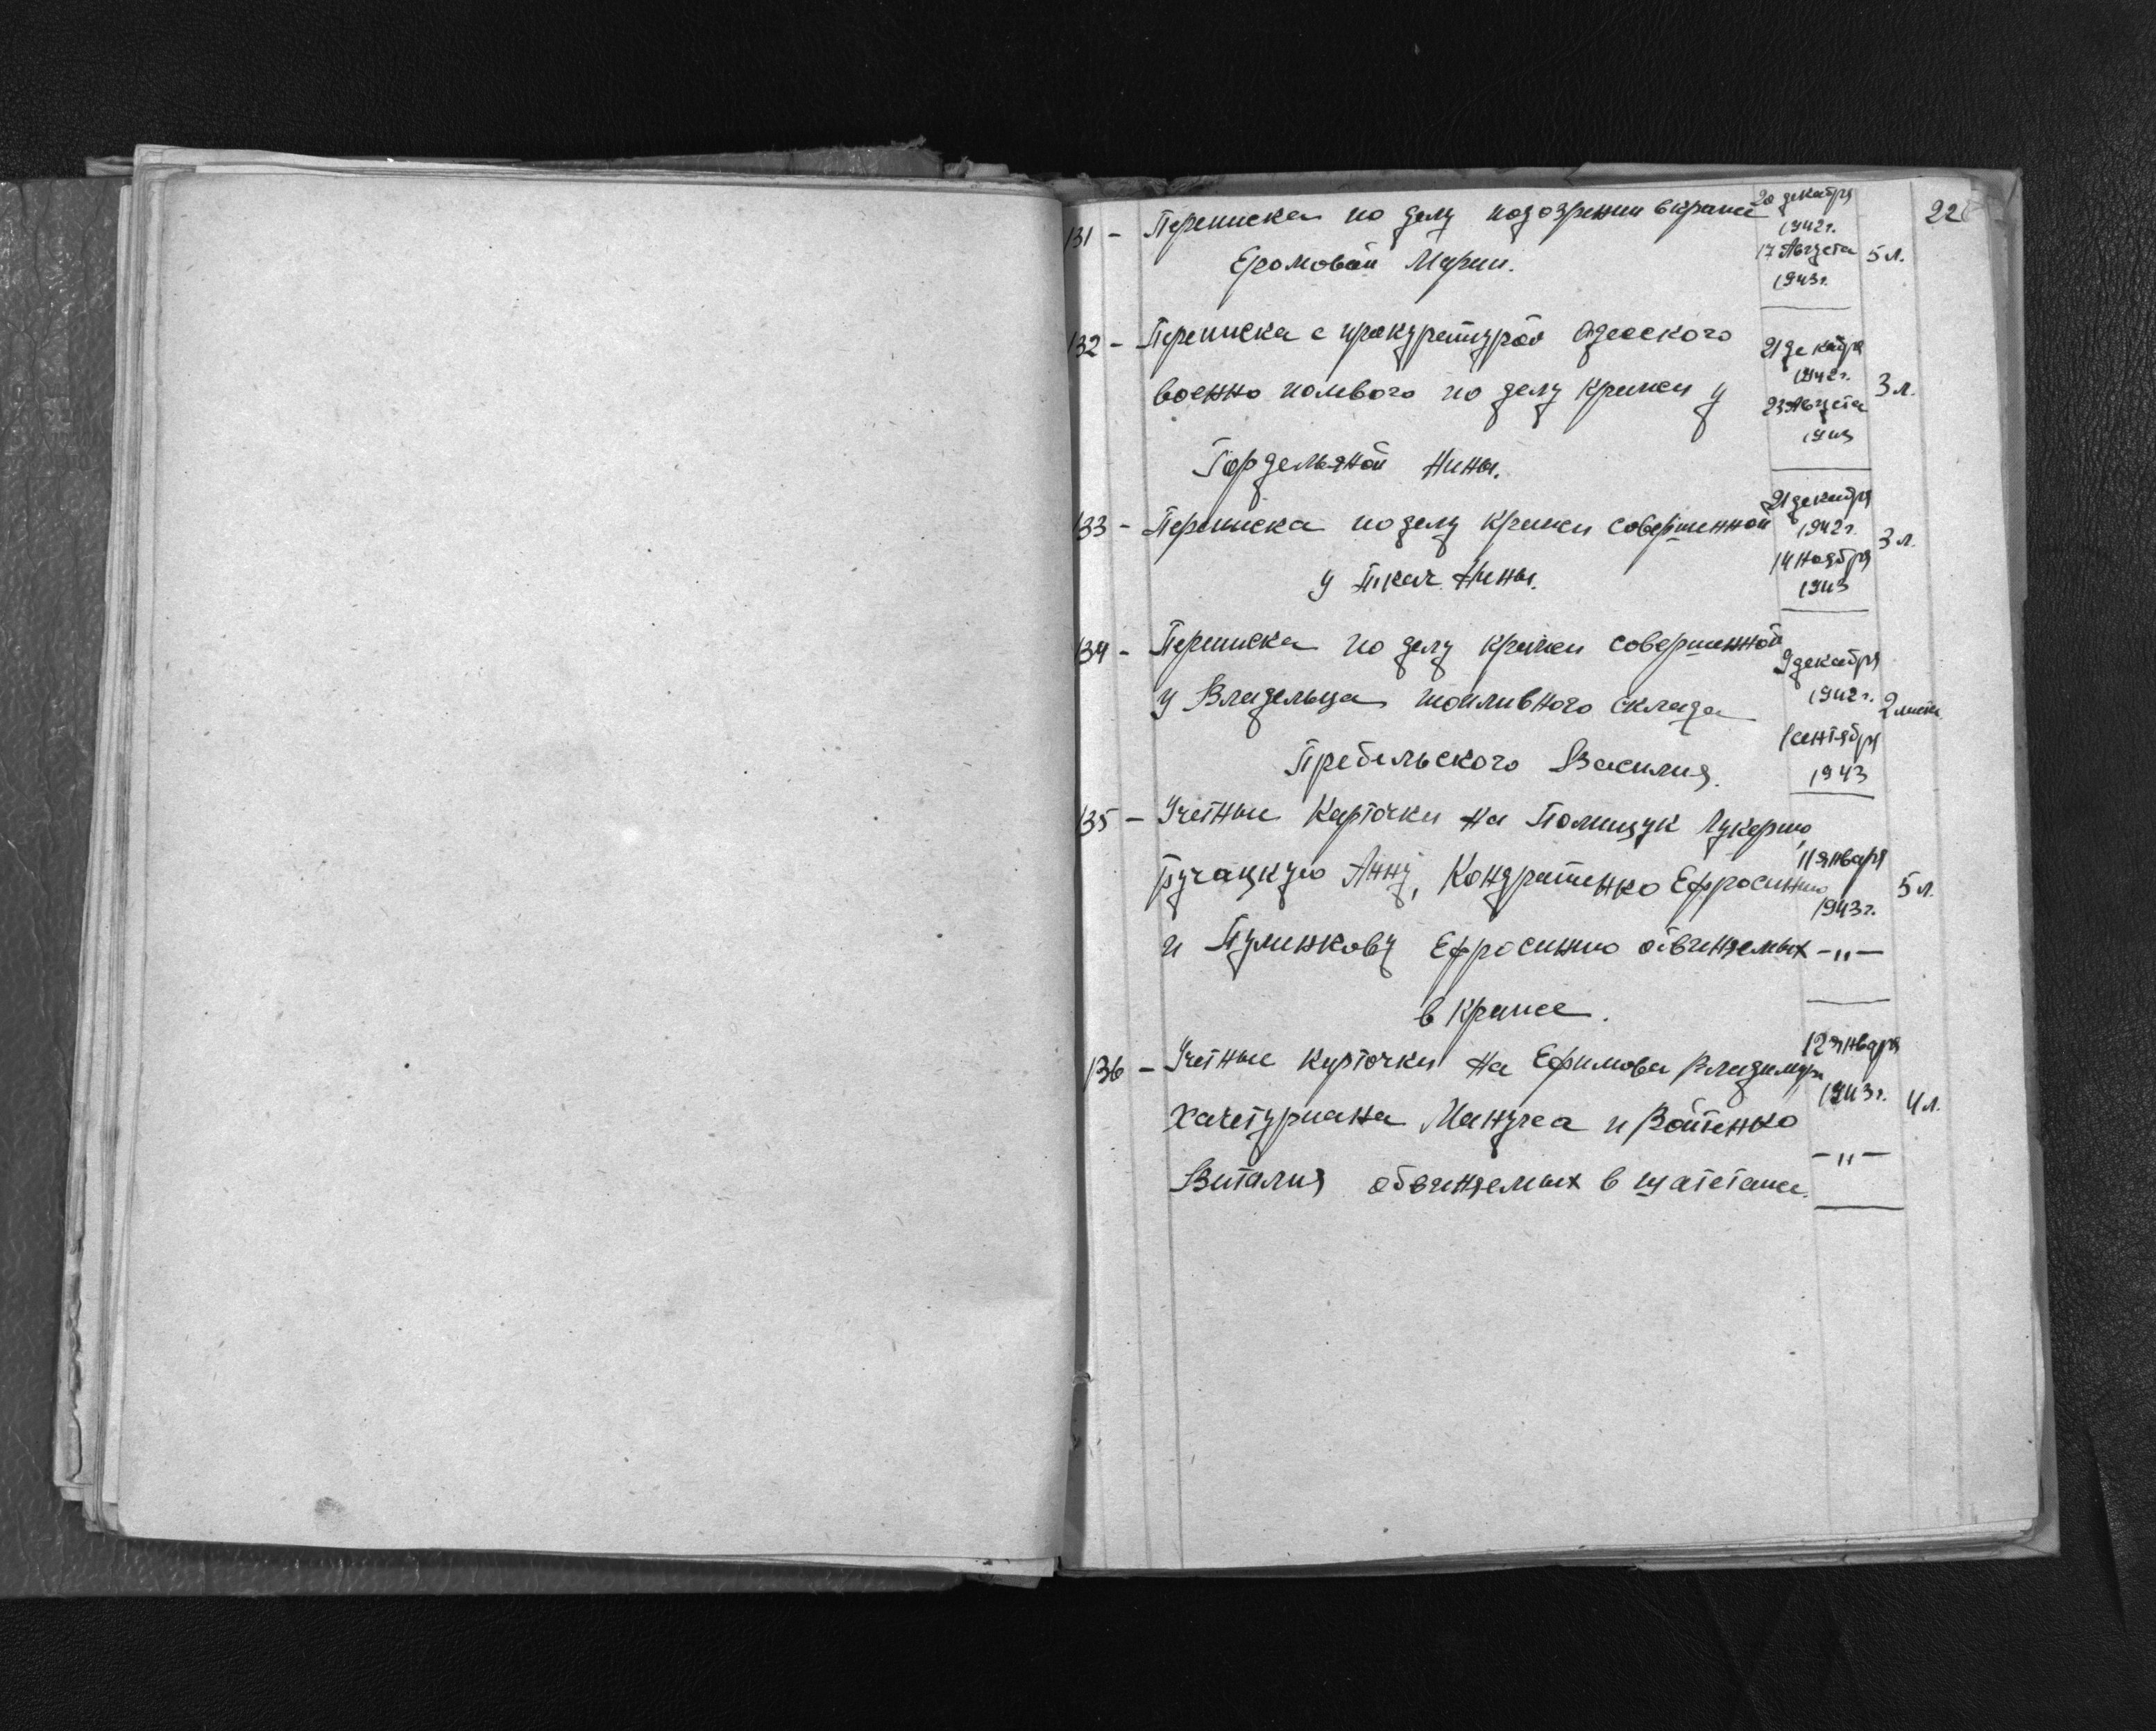 22
131 - Переписка по делу подозрении в краже 20 декабря 1942 г. 17 Августа 1943 г. 5 л.
Ерѳмовой Марии.
132 - Переписка с прокуратурой Одесского 21 декабря 1942 г. 23 Августа 1943 3 л.
военно полвого по делу кражи у
Гордельяной Нины.
133 - Переписка по делу кражи совершенной 21 декабря 1942 г. 14 ноября 1943 3 л.
у Ткач Нины.
134 - Переписка по делу кражи совершенной 9 декабря 1942 г. 1 сентября 1943 2 листа
у Владельца топливного склада
Требельского Василия.
135 - Учетные карточки на Полищук Лукерию, 11 января 1943 г. 5 л.
Бучацкую Анну, Кондратенко Ефросинию
и Ефросинию обвиняемых -"-
в краже.
136 - Учетные карточки на Ефимова Владимира 12 января 1943 г. 4 л.
Хачетуриана Манучса и Войтенко
Виталия обвиняемых в шатетаже. -"-